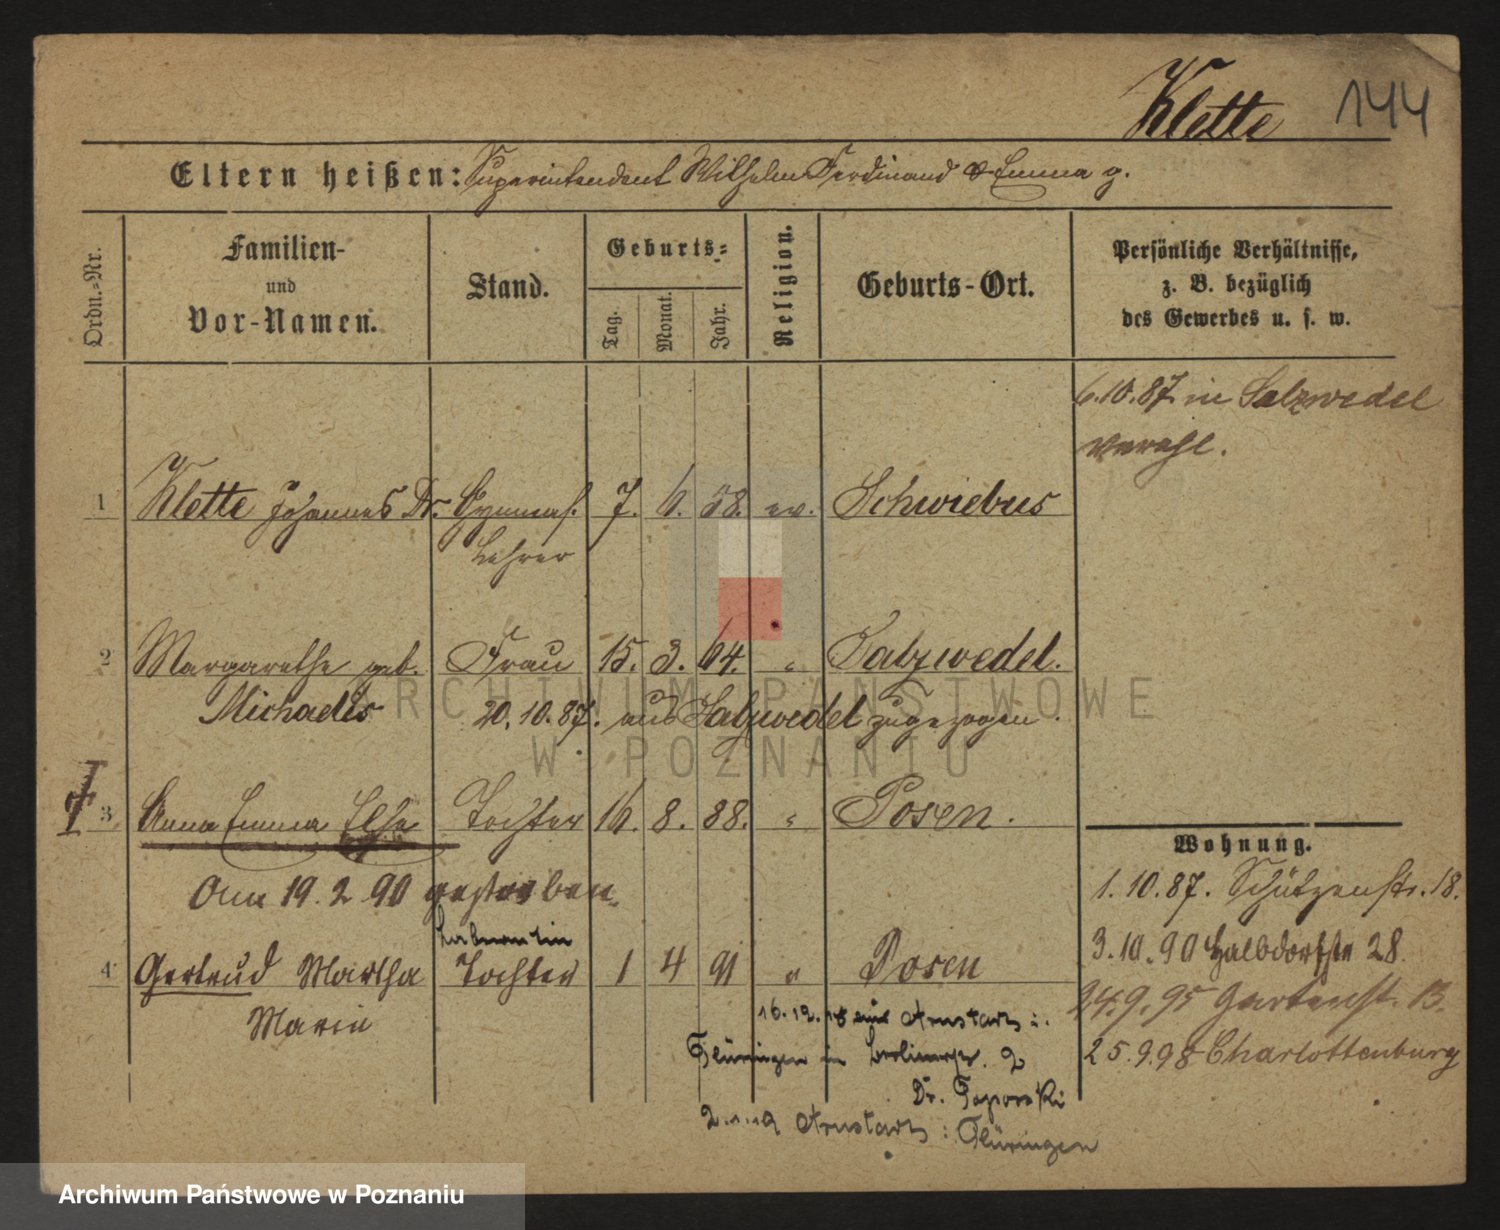 Klette 144
Eltern heißen: Superintendent Wilhelm Ferdinand & Emma g.
Ordn.-Nr.
Familien-
und
Vor-Namen.
Stand.
Geburts-
Tag.
Monat.
Jahr.
Religion.
Geburts-Ort.
Persönliche Verhältnisse,
z. B. bezüglich
des Gewerbes u. s. w.
6.10.87. in Salzwedel
verehl.
1 Klette Johannes Dr. Gymnas. 7. 6. 58. ev. Schwiebus
Lehrer
2 Margarethe geb. Frau 15. 3. 64. " Salzwedel.
Michaelis 20.10.87. aus Salzwedel zugezogen.
3 Anna Emma Else Tochter 16. 8. 88. " Posen.
Am 19. 2 90 gestorben.
Wohnung.
1.10.87. Schützenstr. 18.
3.10.90 Halbdorfstr 28.
Laborantin
4 Gertrud Martha Tochter 1 4 91 " Posen
Marie
24.9.95 Gartenst. 13.
25.9.98 Charlottenburg
16.12.18 aus Arnstadt i.
Thüringen in 2
Dr.
Arnstadt i Thüringen
ARCHIWUM PAŃSTWOWE
W POZNANIU
Archiwum Państwowe w Poznaniu